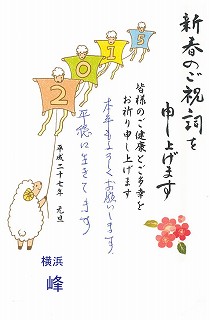 2015
新春のご祝詞を
申し上げます
皆様のご健康とご多幸を
お祈り申し上げます
本年もよろしくお願いします。
平穏に生きてます
平成二十七年 元旦
横浜
峰